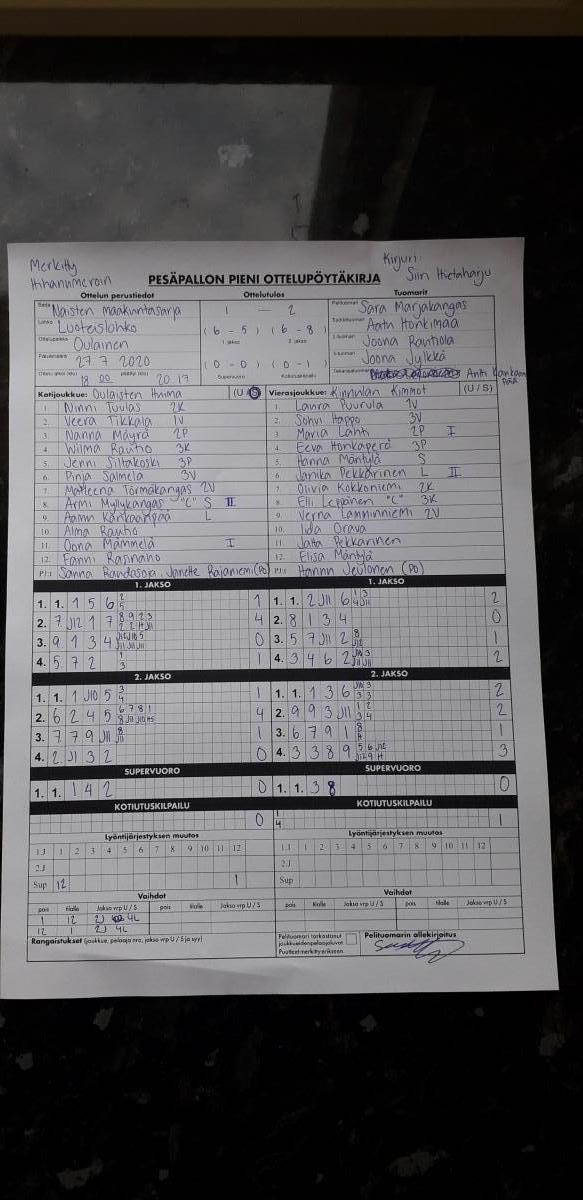 Merkitty
Kirjuri:
Siiri Hietaharju
PESÄPALLON PIENI OTTELUPÖYTÄKIRJA
Ottelun perustiedot Ottelutulos Tuomarit
Sarja Naisten maakuntasarja 1 – 2 Pelituomari Sara Marjakangas
Lohko Luoteislohko (6 – 5) (6 – 8) Aatu Honkimaa
1. jakso 2. jakso
Ottelupaikka Oulainen Joona Rautiola
Päivämäärä 27 7 2020 (0 – 0) (0 – 1) Joona Jylkkä
Ottelu alkoi (klo) 18 00 päättyi (klo) 20 17 Supervuoro Kotiutuskilpailu Antti Kankaanpää
Kotijoukkue: Oulaisten Huima (U / S) Vierasjoukkue: Kinnulan Kimmot (U / S)
1. Ninni Tuulas 2K 1. Laura Puurula 1V
2. Veera Tikkala 1V 2. Sohvi Happo 3V
3. Nanna Mäyrä 2P 3. Maria Lahti 2P I
4. Wilma Rautio 3K 4. Eeva Honkaperä 3P
5. Jenni Siltakoski 3P 5. Hanna Mäntylä S
6. Pinja Salmela 3V 6. Janika Pekkarinen L II
7. Matleena Törmäkangas 2V 7. Olivia Kokkoniemi 2K
8. Armi Myllykangas "C" S II 8. Elli Leppänen "C" 3K
9. Aamu Kankaanpää L 9. Verna Lamminniemi 2V
10. Alma Rautio 10. Iida Orava
11. Oona Mämmelä I 11. Jatta Pekkarinen
12. Fanni Rasinaho 12. Elisa Mäntylä
PJ: Sanna Randasoja, Janette Rajaniemi (PO) PJ: Hannu Jeulonen (PO)
1. JAKSO 1. JAKSO
1. 1. 1 5 6 2 5 1 1. 1. 2 J11 6 1 3 4 J11 2
2. 7 J12 1 7 8 9 2 3 4 2. 8 1 3 4 0
3. 9 1 3 4 0 3. 5 7 J11 2 8 J12 1
4. 5 7 2 1 3 1 4. 3 4 6 2 J10 3 J11 J11 2
2. JAKSO 2. JAKSO
1. 1. 1 J10 5 3 4 1 1. 1. 1 3 6 J10 3 3 3 2
2. 6 2 4 5 6 7 8 1 4 2. 9 9 3 J11 1 2 3 4 2
3. 7 7 9 J11 8 J11 1 3. 6 7 9 1 8 H 1
4. 2 J1 3 2 0 4. 3 3 8 9 5 6 J12 3
SUPERVUORO SUPERVUORO
1. 1. 1 4 2 0 1. 1. 3 8 0
KOTIUTUSKILPAILU KOTIUTUSKILPAILU
0 1 4 1
Lyöntijärjestyksen muutos Lyöntijärjestyksen muutos
1.J 1 2 3 4 5 6 7 8 9 10 11 12 1.J 1 2 3 4 5 6 7 8 9 10 11 12
2.J 2.J
Sup 12 1 Sup
Vaihdot Vaihdot
pois tilalle Jakso vrp U / S pois tilalle Jakso vrp U / S pois tilalle Jakso vrp U / S pois tilalle Jakso vrp U / S
1 12 2J 4L
12 1 2J 4L
Rangaistukset (joukkue, pelaaja nro, jakso vrp U / S ja syy) Pelituomari tarkastanut Pelituomarin allekirjoitus
joukkueiden pelaajaluvat
Puutteet merkitty erikseen